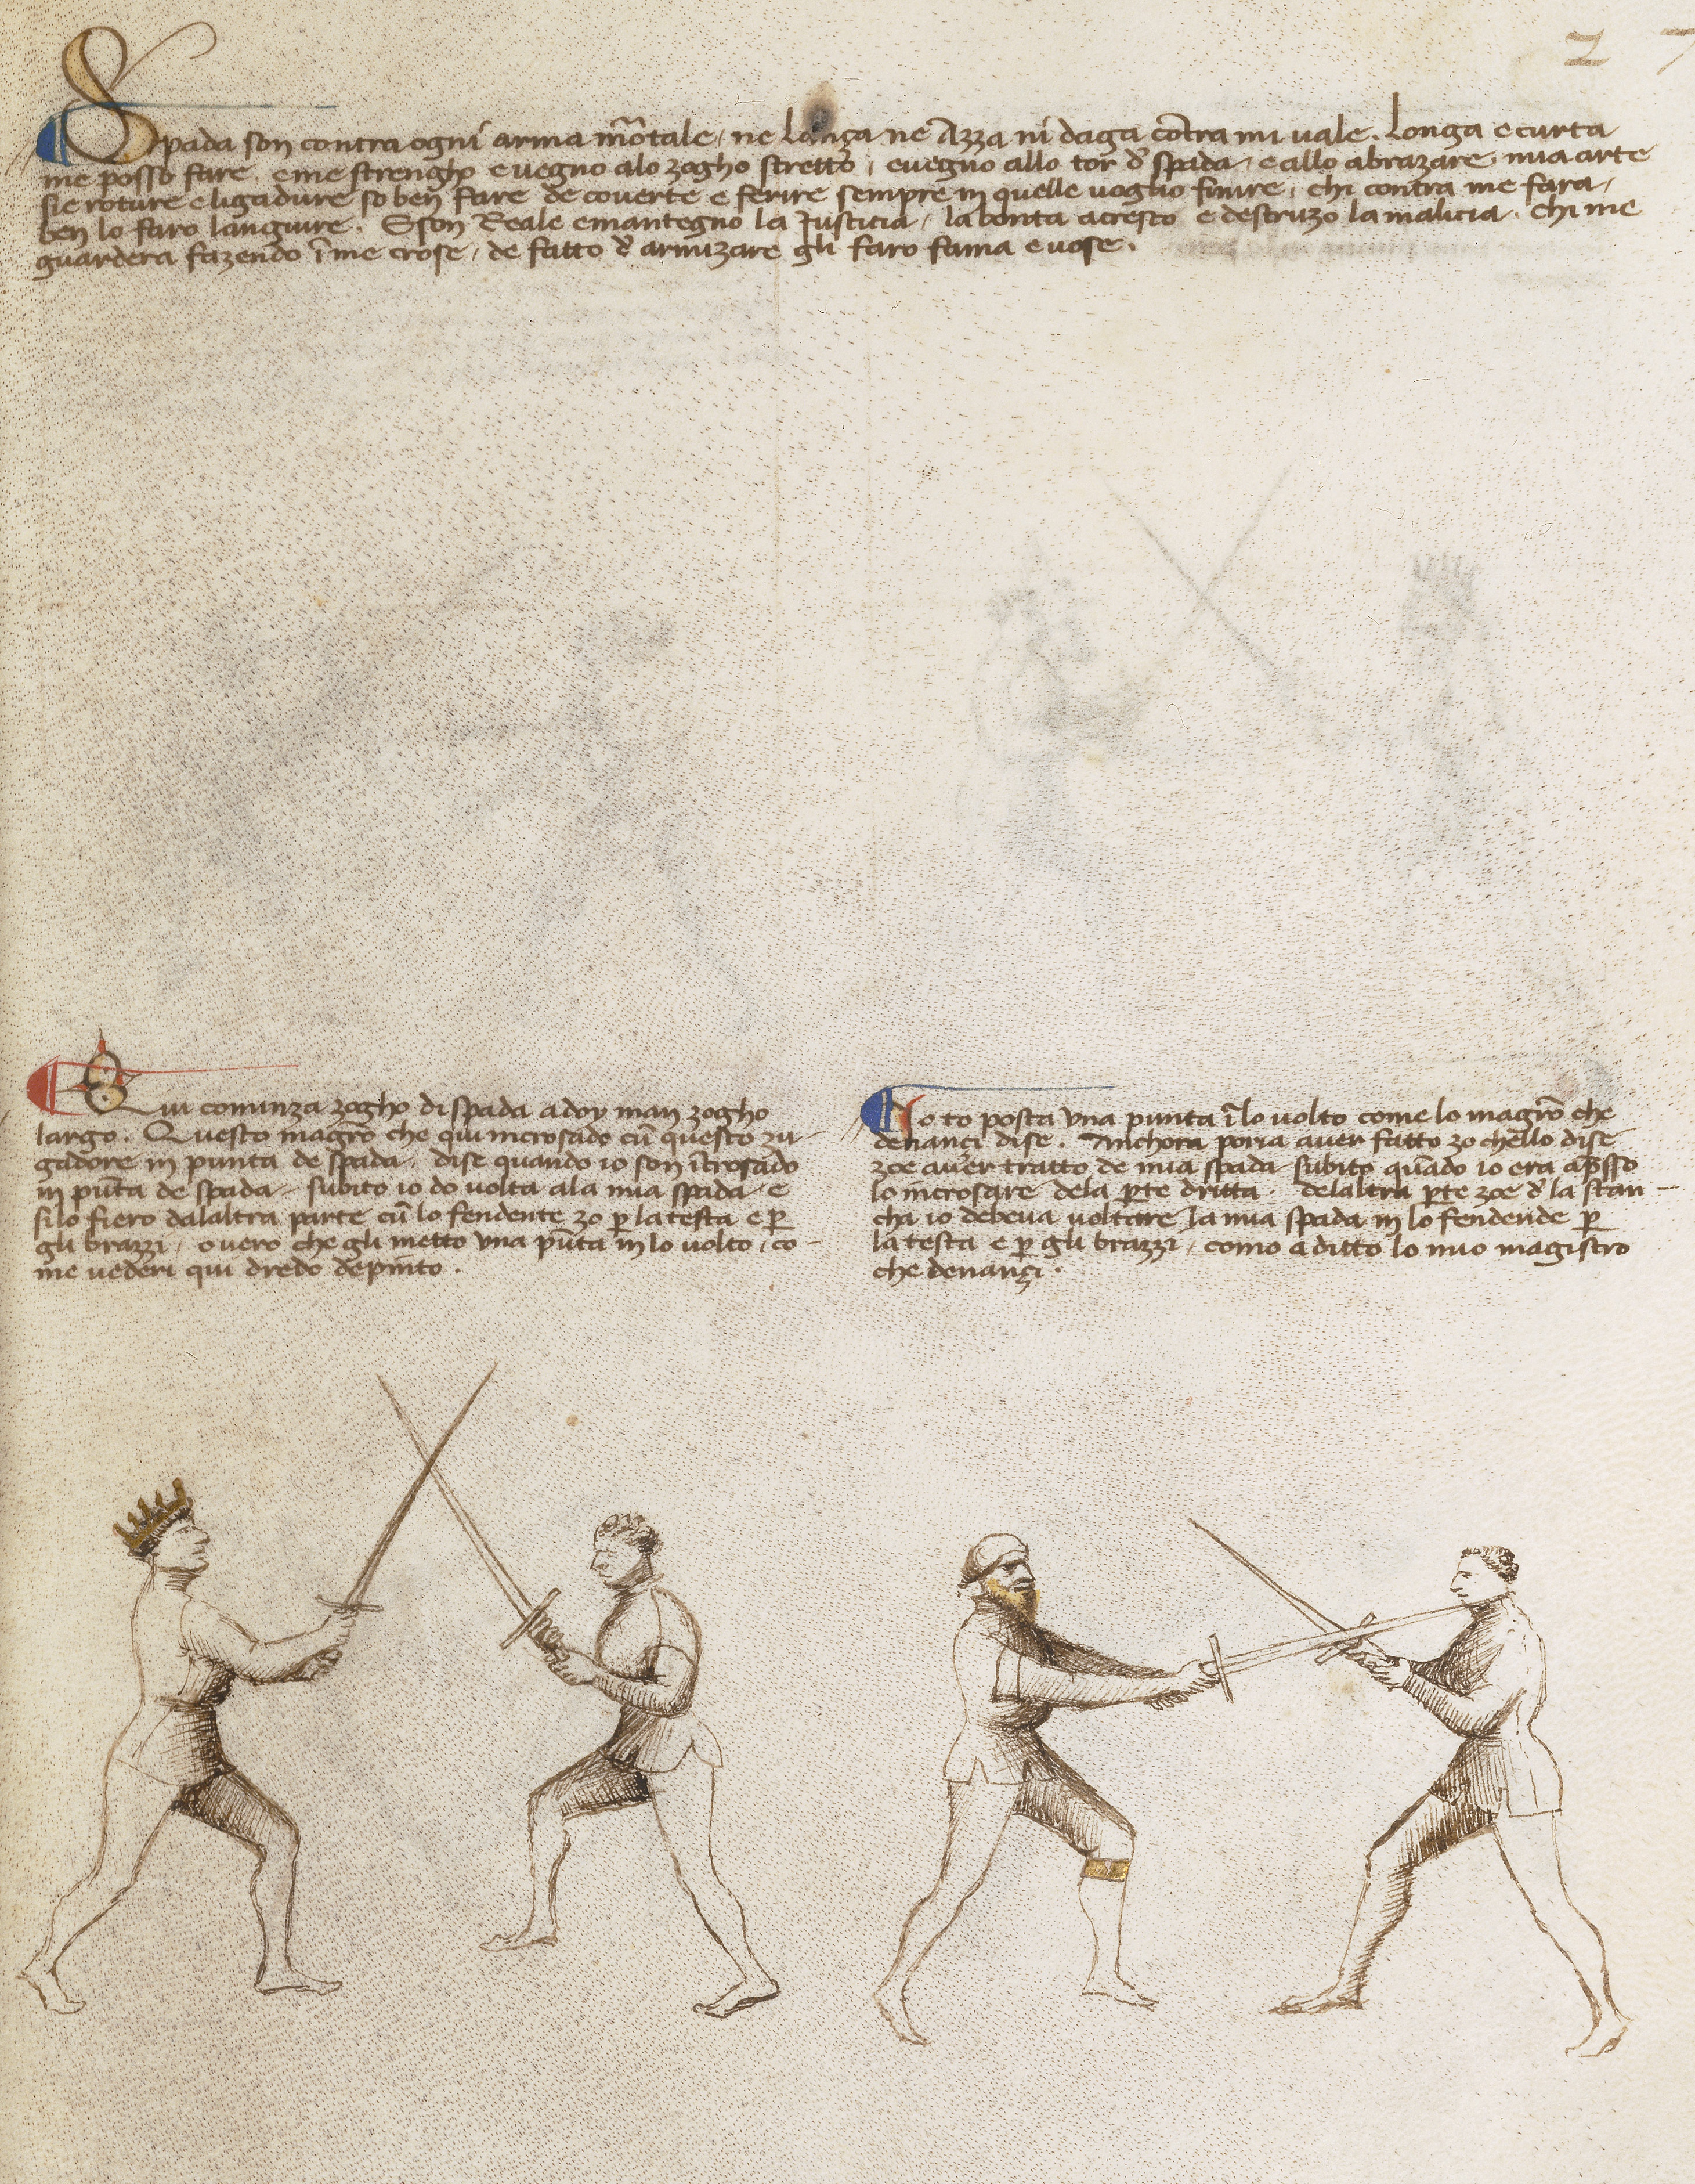 2 7
Spada son contra ogni arma mōtale, ne lança ne Azza ni daga cōtra mi vale. Longa e curta
me posso fare, e me strengho e vegno alo zogho stretto, e vegno allo tor d' spada, e allo abrazare, mia arte
sie roture e ligadure so ben fare de coverte e ferire sempre in quelle voglio finire, chi contra me fara,
ben lo faro languire. E son Reale e mantegno la Justicia, la bonta acresco e destruzo la malicia. Chi me
guardera fazendo ī me crose, de fatto d' armizare gli faro fama e vose.
Qui cominza zogho di spada a doy man zogho
largo. Questo magrō che qui incrosado cū questo zu-
gadore in punta de spada, dise quando io son īcrosado
in pūta de spada, subito io do volta ala mia spada, e
si lo fiero dalaltra parte cū lo fendente zo p̄ la testa e p̄
gli brazzi, overo che gli metto una pūta in lo volto, co-
me vederi qui dredo depinto.
Io to posta una punta ī lo volto come lo magrō che
denançi dise. Anchora poria aver fatto zo chello dise
zoe aver tratto de mia spada subito quādo io era ap̄sso
lo incrosare dela p̄te dritta. Delaltra p̄te zoe d' la stan-
cha io debeva voltare la mia spada in lo fendende p̄
la testa e p̄ gli brazzi, como a ditto lo mio magistro
che denançi.